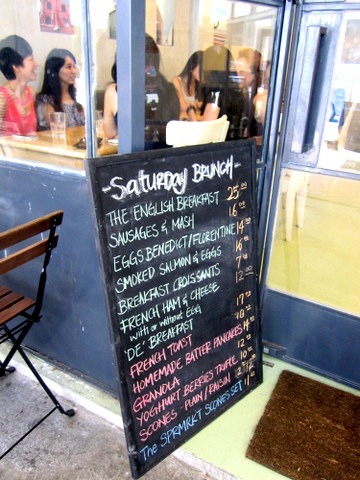 -SATURDAY BRUNCH-
THE ENGLISH BREAKFAST 25
SAUSAGES & MASH 16
EGGS BENEDICT/FLORENTINE 14
SMOKED SALMON & EGGS 16
BREAKFAST CROISSANTS 7
FRENCH HAM & CHEESE 12
with or without EGG
'DE' BREAKFAST 17
FRENCH TOAST
HOMEMADE BATTER PANCAKES 14
GRANOLA 12
YOGHURT BERRIES TRUFFLE 10
SCONES - PLAIN/RAISIN
The SPRMRKT SCONES SET